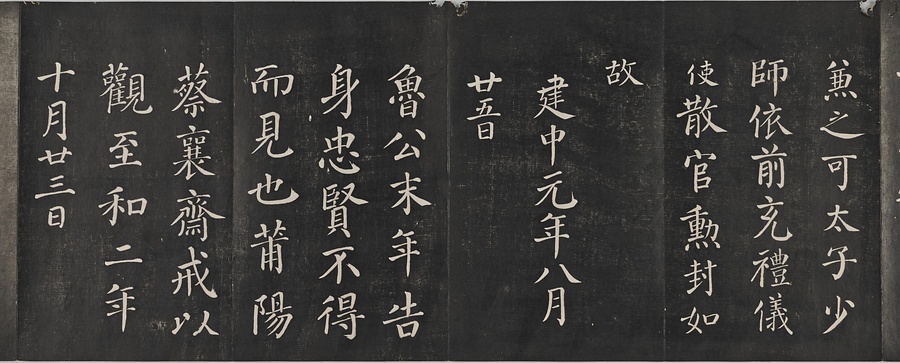 兼之可太子少
師依前充禮儀
使散官勲封如
故
建中元年八月
廿五日
魯公末年告
身忠賢不得
而見也莆陽
蔡襄齋戒以
觀至和二年
十月廿三日